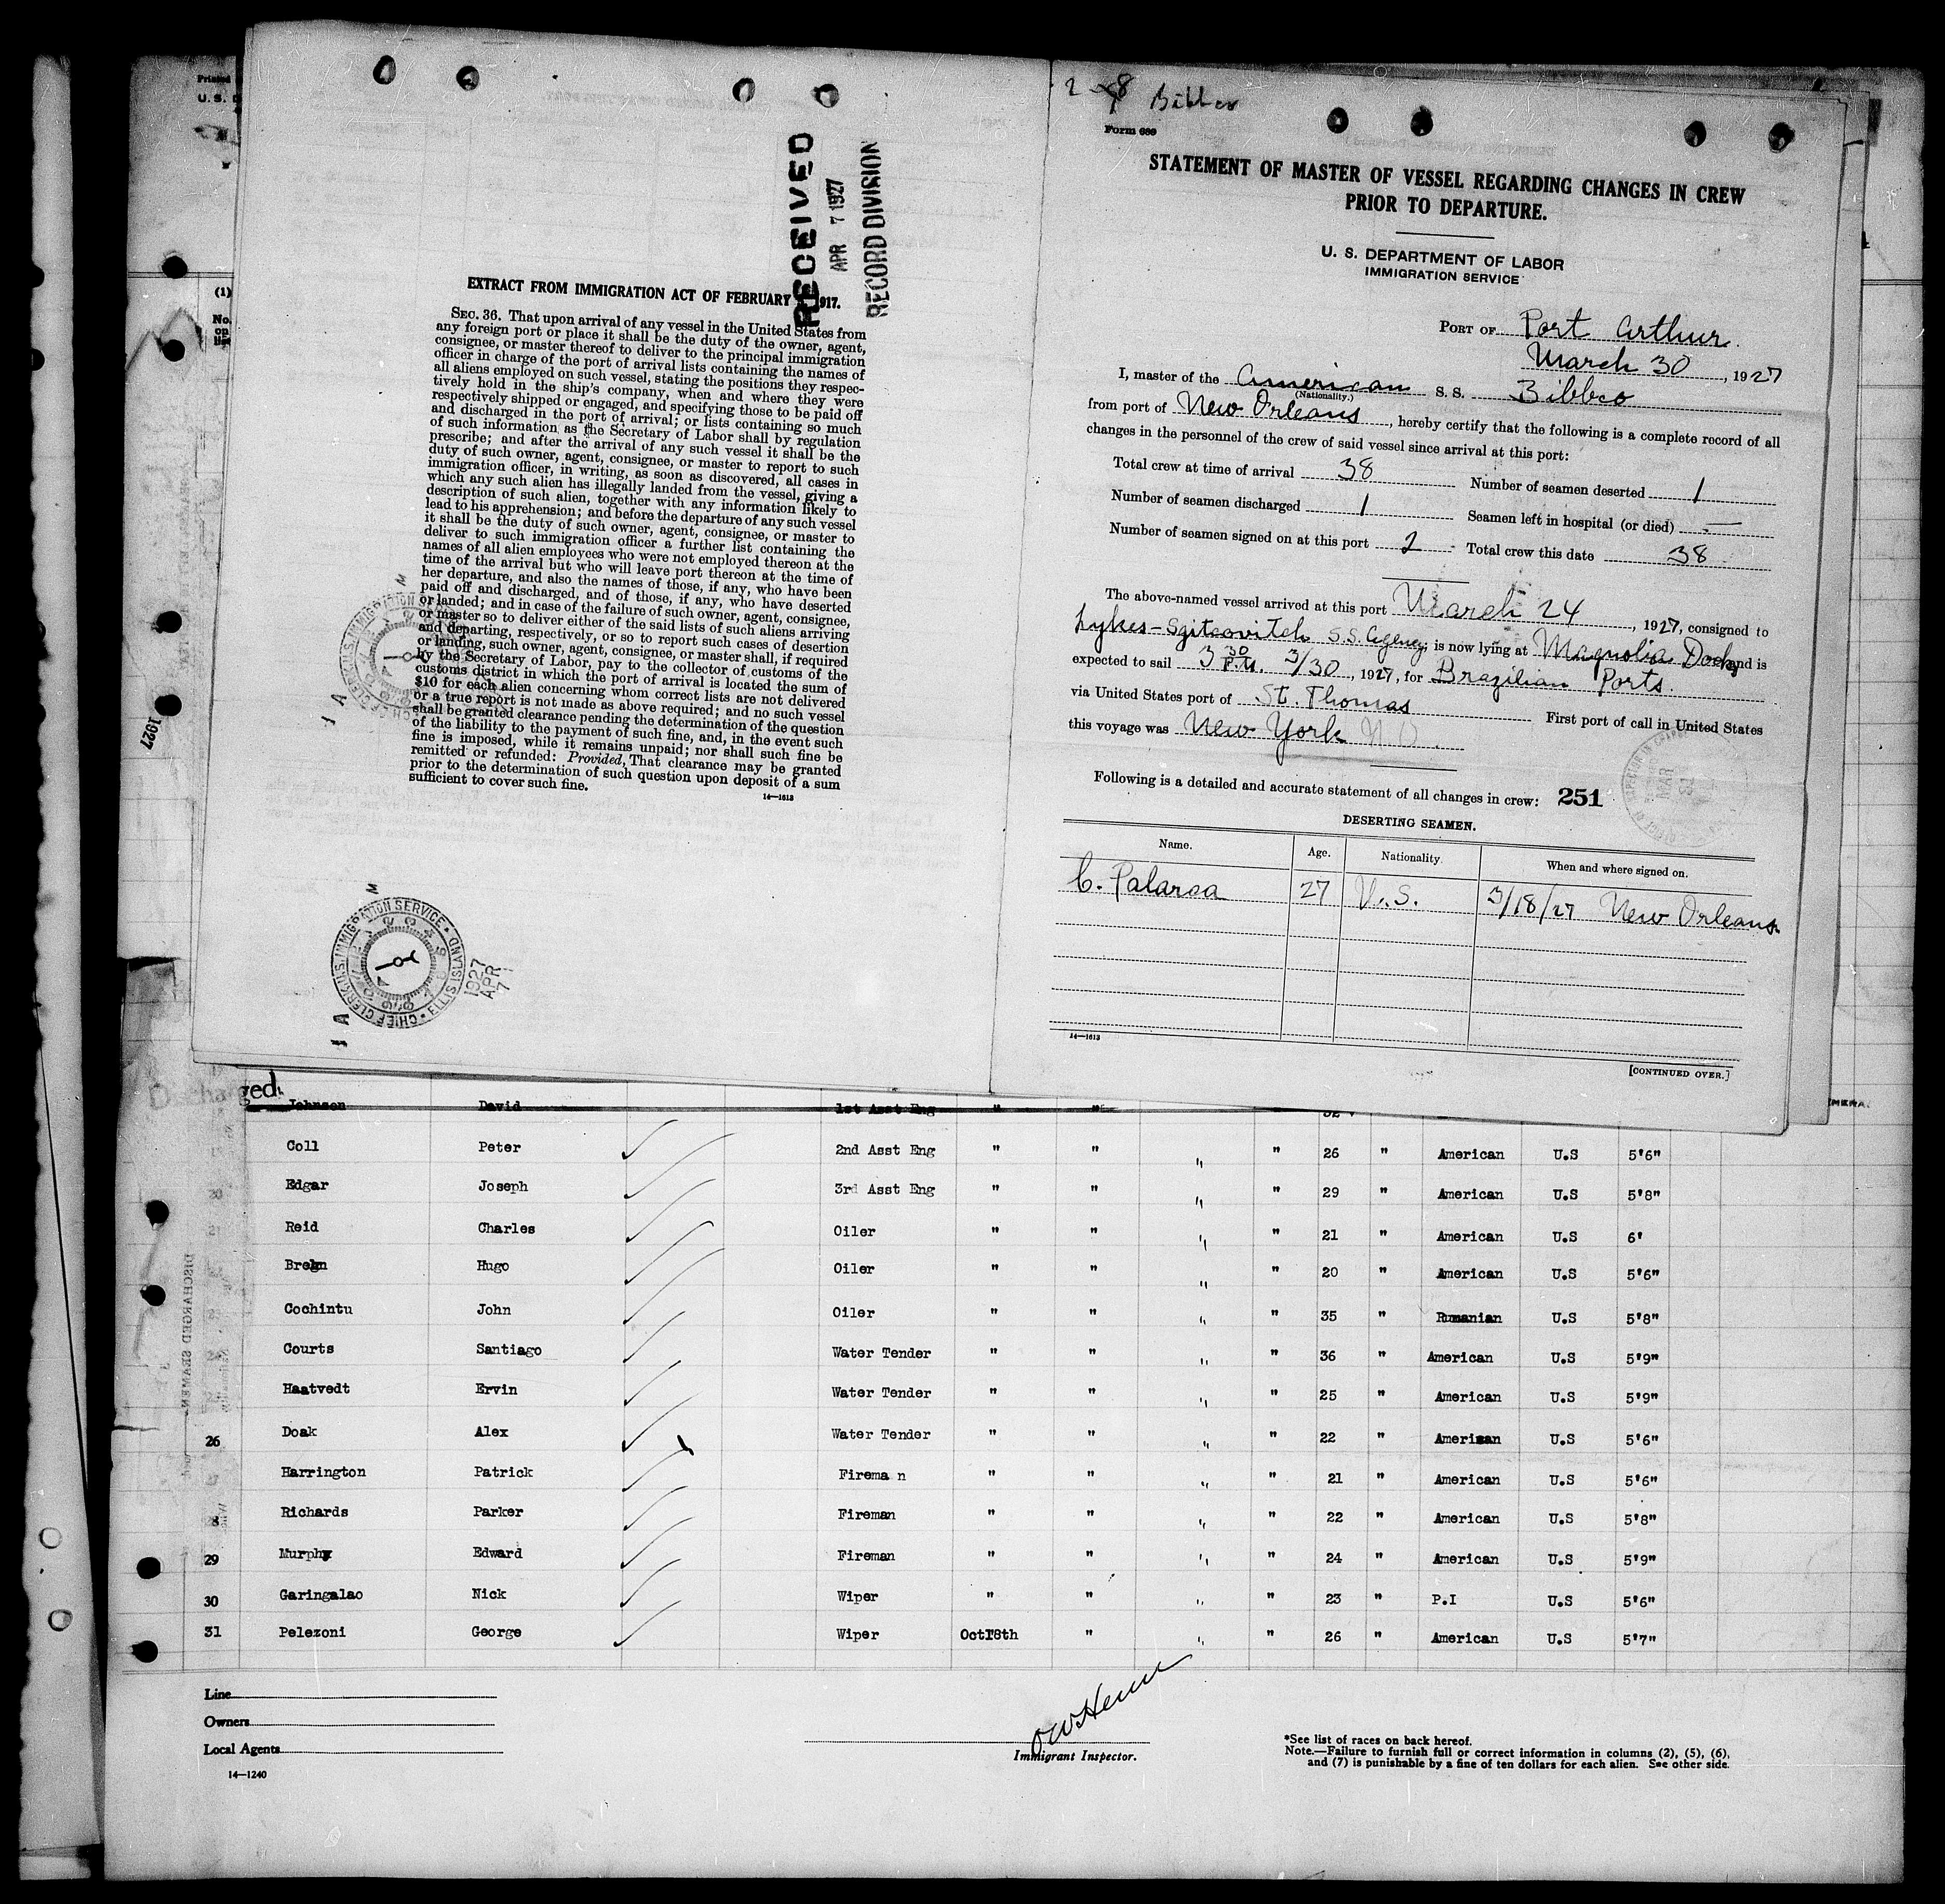 Printed
U. S. D
(1)
No.
on
list
1927
RECEIVED
APR 7 1927
RECORD DIVISION
EXTRACT FROM IMMIGRATION ACT OF FEBRUARY 917.
SEC. 36. That upon arrival of any vessel in the United States from
any foreign port or place it shall be the duty of the owner, agent,
consignee, or master thereof to deliver to the principal immigration
officer in charge of the port of arrival lists containing the names of
all aliens employed on such vessel, stating the positions they respec-
tively hold in the ship's company, when and where they were
respectively shipped or engaged, and specifying those to be paid off
and discharged in the port of arrival; or lists containing so much
of such information as the Secretary of Labor shall by regulation
prescribe; and after the arrival of any such vessel it shall be the
duty of such owner, agent, consignee, or master to report to such
immigration officer, in writing, as soon as discovered, all cases in
which any such alien has illegally landed from the vessel, giving a
description of such alien, together with any information likely to
lead to his apprehension; and before the departure of any such vessel
it shall be the duty of such owner, agent, consignee, or master to
deliver to such immigration officer a further list containing the
names of all alien employees who were not employed thereon at the
time of the arrival but who will leave port thereon at the time of
her departure, and also the names of those, if any, who have been
paid off and discharged, and of those, if any, who have deserted
or landed; and in case of the failure of such owner, agent, consignee,
or master so to deliver either of the said lists of such aliens arriving
and departing, respectively, or so to report such cases of desertion
or landing, such owner, agent, consignee, or master shall, if required
by the Secretary of Labor, pay to the collector of customs of the
customs district in which the port of arrival is located the sum of
$10 for each alien concerning whom correct lists are not delivered
or a true report is not made as above required; and no such vessel
shall be granted clearance pending the determination of the question
of the liability to the payment of such fine, and, in the event such
fine is imposed, while it remains unpaid; nor shall such fine be
remitted or refunded: Provided, That clearance may be granted
prior to the determination of such question upon deposit of a sum
sufficient to cover such fine.
14—1613
CHIEF CLERK U.S. IMMIGRATION SERVICE • ELLIS ISLAND
1927 APR 7
Bibbco
Form 689
STATEMENT OF MASTER OF VESSEL REGARDING CHANGES IN CREW
PRIOR TO DEPARTURE.
U. S. DEPARTMENT OF LABOR
IMMIGRATION SERVICE
PORT OF Port Arthur
March 30, 1927
I, master of the American S. S. Bibbco
(Nationality.)
from port of New Orleans, hereby certify that the following is a complete record of all
changes in the personnel of the crew of said vessel since arrival at this port:
Total crew at time of arrival 38 Number of seamen deserted 1
Number of seamen discharged 1 Seamen left in hospital (or died) —
Number of seamen signed on at this port 2 Total crew this date 38
The above-named vessel arrived at this port March 24, 1927, consigned to
Lykes-Sgitcovitch S.S. Agency; is now lying at Magnolia Dock, and is
expected to sail 3 30 P.M. 3/30, 1927, for Brazilian Ports.
via United States port of St. Thomas First port of call in United States
this voyage was New York N.O.
Following is a detailed and accurate statement of all changes in crew: 251
DESERTING SEAMEN.
Name. Age. Nationality. When and where signed on.
C. Palarea 27 U.S. 3/18/27 New Orleans
14—1613
[CONTINUED OVER.]
Discharged.
Johnson David 1st Asst Eng " "
Coll Peter 2nd Asst Eng " " " " 26 " American U.S 5'6"
Edgar Joseph 3rd Asst Eng " " " " 29 " American U.S 5'8"
Reid Charles Oiler " " " " 21 " American U.S 6'
Hugo Oiler " " " " 20 " American U.S 5'6"
Cochintu John Oiler " " " " 35 " Rumanian U.S 5'8"
Courts Santiago Water Tender " " " " 36 " American U.S 5'9"
Haatvedt Ervin Water Tender " " " " 25 " American U.S 5'9"
26 Doak Alex Water Tender " " " " 22 " American U.S 5'6"
27 Harrington Patrick Firema n " " " " 21 " American U.S 5'6"
8 Richards Parker Fireman " " " " 22 " American U.S 5'8"
29 Murphy Edward Fireman " " " " 24 " American U.S 5'9"
30 Garingalao Nick Wiper " " " " 23 " P.I U.S 5'6"
31 Pelezoni George Wiper Oct18th " " " 26 " American U.S 5'7"
Line
Owners
Local Agents
14—1240
Immigrant Inspector.
*See list of races on back hereof.
Note.—Failure to furnish full or correct information in columns (2), (5), (6),
and (7) is punishable by a fine of ten dollars for each alien. See other side.
DISCHARGED SEAMEN